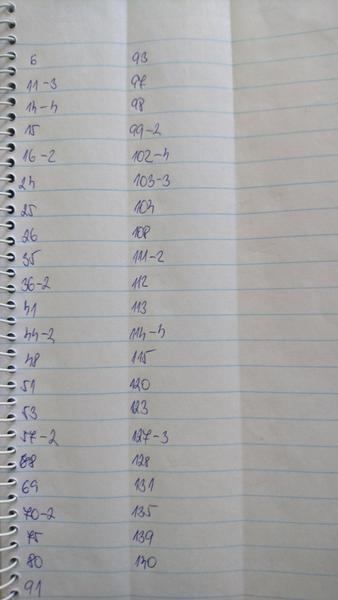 6
11-3
14-4
15
16-2
24
25
26
35
36-2
41
44-2
48
51
53
57-2
68
69
70-2
75
80
91
93
97
98
99-2
102-4
103-3
104
108
111-2
112
113
114-4
115
120
123
127-3
128
131
135
139
140